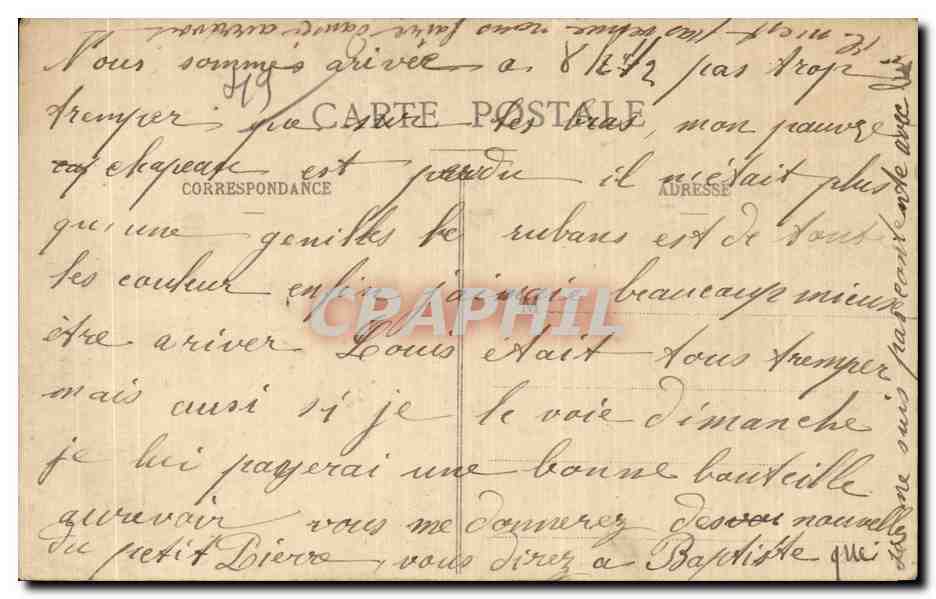 Nous sommes arivée a 8 h 1/2 pas trop
519
CARTE POSTALE
tremper que sur les bras, mon pauvre
chapeau est perdu il n'était plus
CORRESPONDANCE
ADRESSE
qu'une le rubans est de tout
les couleur enfin j'aimais beaucoup mieux
M
être ariver Louis était tous tremper
mais ausi si je le voie dimanche
je lui payerai une bonne bouteille
aurevoir vous me donnerez des nouvelle
du petit Pierre, vous direz a Baptiste que
je ne suis pas contente avec lui
il n'est pas venue nous faire danser
CPARAPHIL